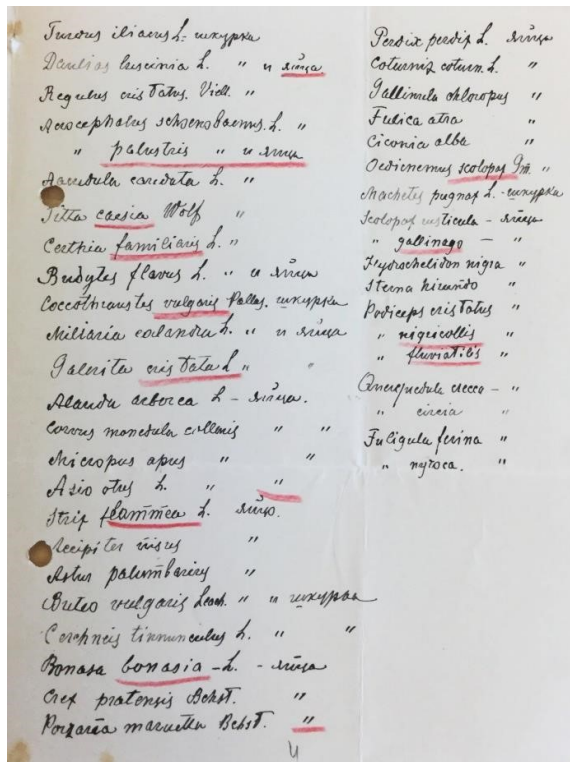 Turdus iliacus L. - шкурка
Daulias luscinia L. " и яйца
Regulus cristatus. Vieill. "
Acrocephalus schoenobaenus. L. "
" palustris " и яйца
Acredula caudata L. "
Sitta caesia Wolf "
Certhia familiaris L. "
Budytes flavus L. " и яйца
Coccothraustes vulgaris Pallas. шкурка
Miliaria calandra L. " и яйца
Galerita cristata L " "
Alauda arborea L - яйца.
Corvus monedula collaris " "
Micropus apus " "
Asio otus L. " "
Strix flammea L. яйцо.
Accipiter nisus "
Astur palumbarius "
Buteo vulgaris Leach. " и шкурка
Cerchneis tinnunculus L. " "
Bonasa bonasia - L. - яйца
Crex pratensis Bchst. "
Porzana maruetta Bchst. "
Perdix perdix L. яйца
Coturnix coturn. L. "
Gallinula chloropus "
Fulica atra "
Ciconia alba "
Oedicnemus scolopax Gm. "
Machetes pugnax L. - шкурка
Scolopax rusticula - яйца
" gallinago - "
Hydrochelidon nigra "
Sterna hirundo "
Podiceps cristatus "
" nigricollis "
" fluviatilis "
Querquedula crecca - "
" circia "
Fuligula ferina "
" nyroca. "
4